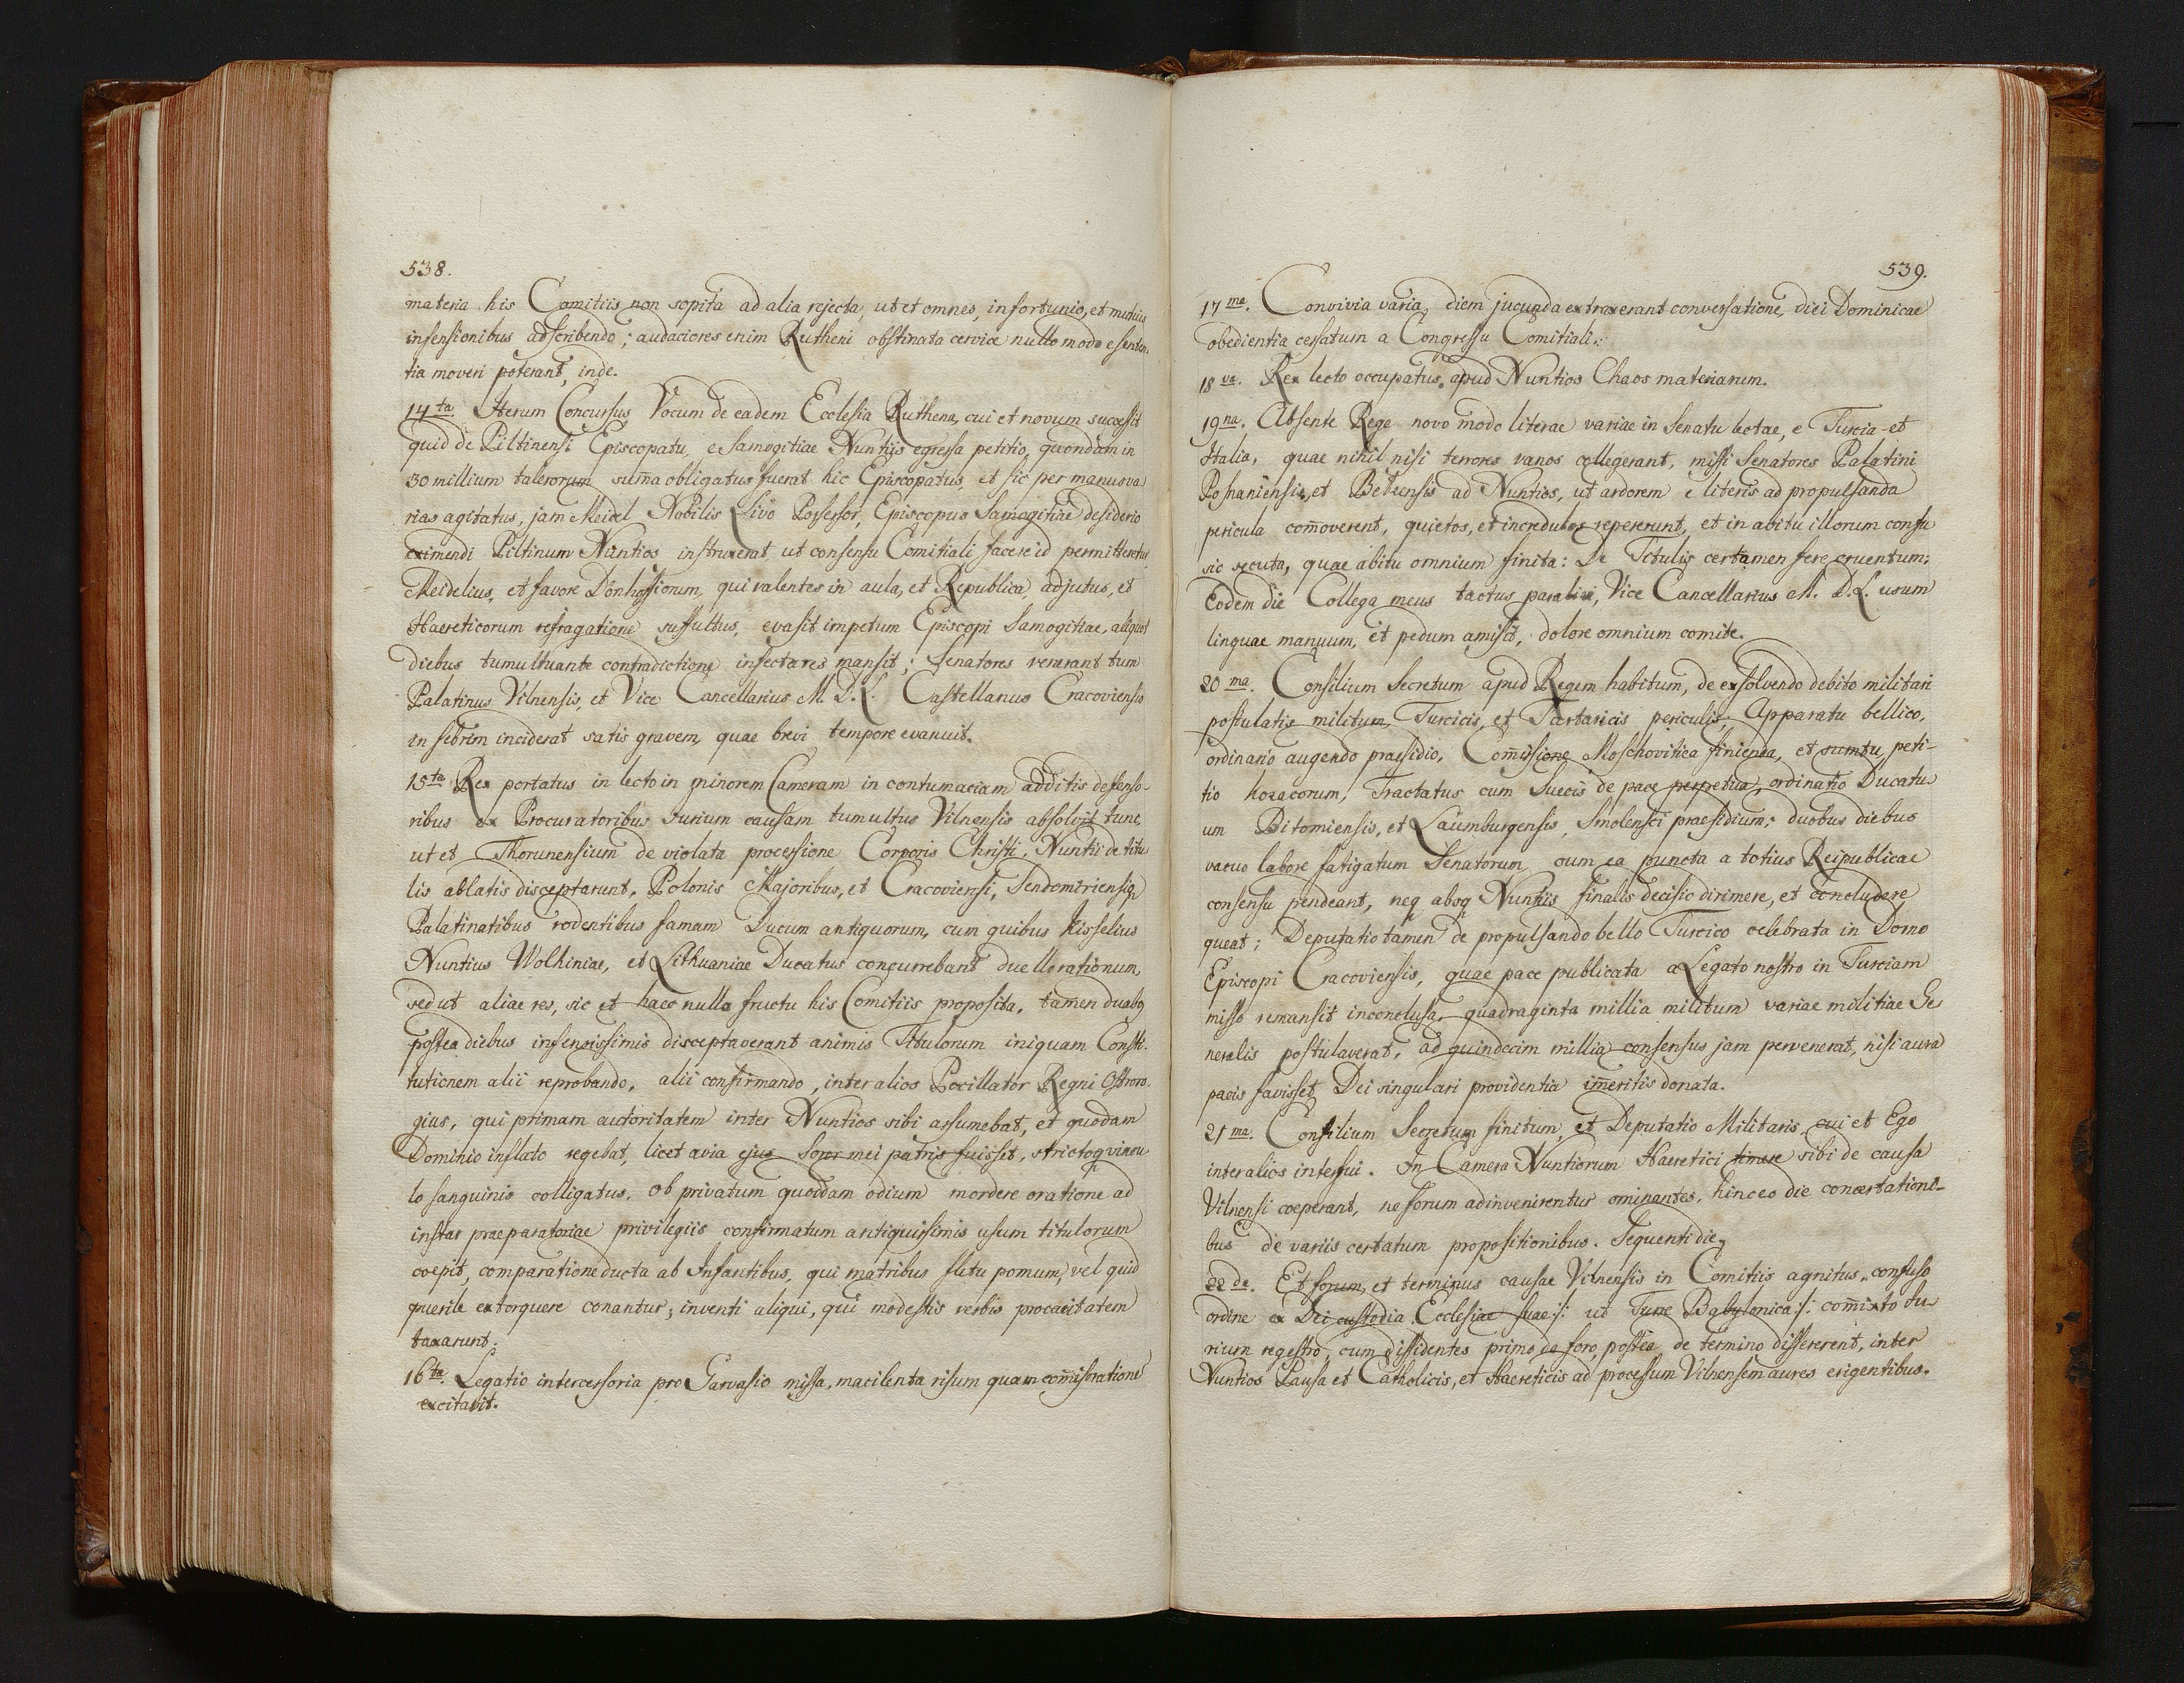 538.
materia his Comitiis non sopita ad alia rejecta, ut et omnes, infortunio, et mutuis
infensionibus adscribendo; audaciores enim Rutheni obstinata cervice nullo modo e senten
tia moveri poterant, inde.
14ta. Iterum Concursus Vocum de eadem Ecclesia Ruthena, cui et novum successit
quid de Piltinensi Episcopatu, e Samogitiae Nuntiis egressa petitio, quondam in
30 millium talerorum sum̄a obligatus fuerat hic Episcopatus, et sic per manus va
rias agitatus, jam Meidel Nobilis Livo Possessor, Episcopus Samogitiae desiderio
eximendi Piltinum Nuntios instruxerat ut consensu Comitiali facere id permitteretur
Meidelius, et favore Dönhoffiorum, qui valentes in aula, et Republica, adjutus, et
Haereticorum refragatione suffultus, evasit impetum Episcopi Samogitiae, aliquot
diebus tumultuante contradictione infecta res mansit; Senatores venerant tum
Palatinus Vilnensis, et Vice Cancellarius M. D. L. Castellanus Cracoviensis
in febrim inciderat satis gravem, quae brevi tempore evanuit.
15ta Rex portatus in lecto in minorem Cameram in contumaciam additis defenso-
ribus ex Procuratoribus Furium causam tumultus Vilnensis absolvit tunc,
ut et Thorunensium de violata processione Corporis Christi. Nuntii de titu
lis ablatis disceptarunt. Polonis Majoribus, et Cracoviensi, Sendomiriensiq
Palatinatibus rodentibus famam Ducum antiquorum, cum quibus Kisselius
Nuntius Wolhiniae, et Lithuaniae Ducatus concurrebant duello rationum,
sed ut aliae res, sic et haec nullo fructu his Comitiis proposita, tamen duabq
postea diebus infensissimis disceptaverant animis Titulorum iniquam Consti-
tutionem alii reprobando, alii confirmando, inter alios Pocillator Regni Ostroro-
gius, qui primam auctoritatem inter Nuntios sibi assumebat, et quodam
Dominio inflato regebat, licet avia ejus Soror mei patris fuisset, strictoq vincu
lo sanguinis colligatus, ob privatum quoddam odium mordere oratione ad
instar praeparatoriae privilegiis confirmatum antiquissimis usum titulorum
coepit, comparatione ducta ab Infantibus, qui matribus fletu pomum, vel quid
puerile extorquere conantur; inventi aliqui, qui modestis verbis procacitatem
taxarunt;
16ta. Legatio intercessoria pro Garvasio missa, macilenta risum quam com̄iserationē
excitavit.
539.
17ma. Convivia varia, diem jucunda extraxerant conversatione, diei Dominicae
obedientia cessatum a Congressu Comitiali.
18va. Rex lecto occupatus, apud Nuntios Chaos materiarum.
19na. Absente Rege novo modo literae variae in Senatu lectae, e Turcia et
Italia, quae nihil nisi terrores vanos collegerant, missi Senatores Palatini
Posnaniensis, et Belzensis ad Nuntios, ut ardorem e literis ad propulsanda
pericula com̄overent, quietos, et incredulos repererunt, et in abitu illorum confu
sio secuta, quae abitu omnium finita: De Titulis certamen fere cruentum;
Eodem die Collega meus tactus paralisi, Vice Cancellarius M. D. L. usum
linguae manuum, et pedum amisit, dolore omnium comite.
20ma. Consilium Secretum apud Regem habitum, de exsolvendo debito militari
postulatis militum, Turcicis, et Tartaricis periculis, Apparatu bellico,
ordinario augendo praesidio, Com̄issione Moschovitica finienda, et sumtu, peti-
tio Kozacorum, Tractatus cum Suecis de pace perpetua, ordinatio Ducatu
um Bitomiensis, et Laümburgensis, Smolensci praesidium; duobus diebus
vacuo labore fatigatum Senatorum, cum ea puncta a totius Reipublicae
consensu pendeant, neq absq Nuntiis finalis decisio dirimere, et concludere
queat; Deputatio tamen de propulsando bello Turcico celebrata in Domo
Episcopi Cracoviensis, quae pace publicata a Legato nostro in Turciam
misso remansit inconclusa, quadraginta millia militum variae militiae Ge
neralis postulaverat, ad quindecim millia consensus jam pervenerat, nisi aura
pacis favisset Dei singulari providentia im̄eritis donata.
21ma. Consilium Secretum finitum, et Deputatio Militaris, cui et Ego
inter alios interfui. In Camera Nuntiorum Haeretici timere sibi de causa
Vilnensi coeperant, ne forum adinvenirentur ominantes, hinc eo die concertationi-
bus de variis certatum propositionibus. Sequenti die,
22da. Et forum, et terminus causae Vilnensis in Comitiis agnitus, confuso
ordine ex Dei custodia Ecclesiae suae :/: ut Turre Babylonica :/: com̄ixto Fu
rium regestro, cum dissidentes primo de foro, postea de termino dissererent, inter
Nuntios Pausa et Catholicis, et Haereticis ad processum Vilnensem aures erigentibus.